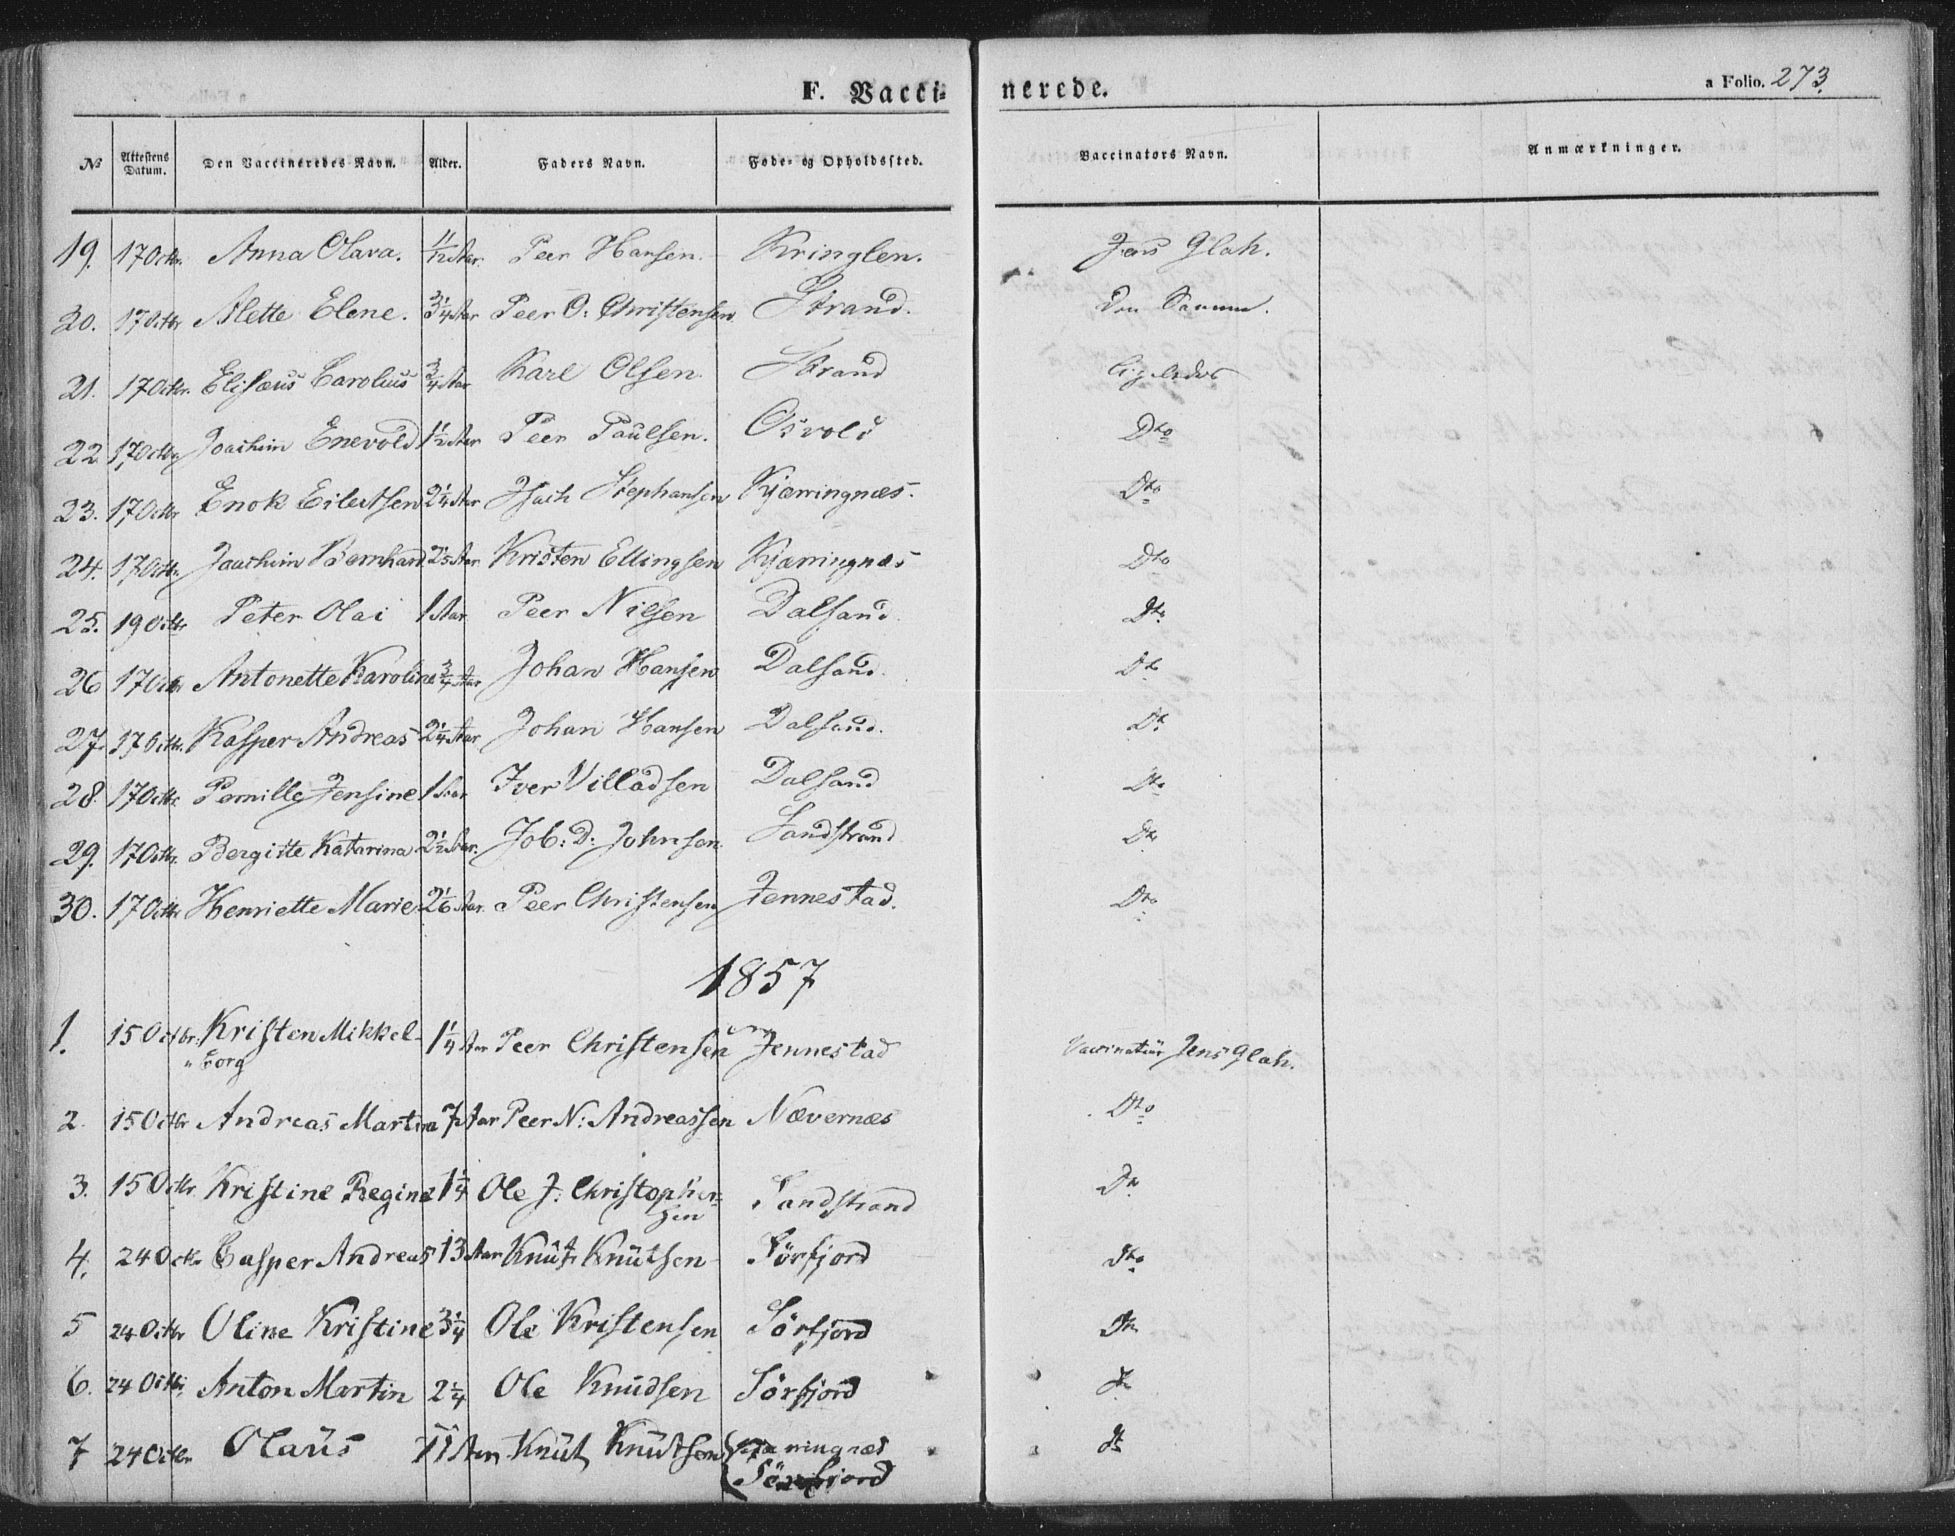 F. Vacci- nerede. a Folio. 273.
No Attestens Datum. Den Vaccineredes Navn. Alder. Faders Navn. Føde- og Opholdssted. Vaccinators Navn. Anmærkninger.
19. 17 Octbr. Anna Olava. 11/12 Aar. Peer Hansen. Kringlen. Jens Glah.
20. 17 Octbr Alette Elene. 3 1/4 Aar Peer O: Christensen Strand. Den Samme.
21. 17 Octbr. Elisæus Carolius 3/4 Aar Karl Olsen Strand Ligeledes
22 17 Octbr Joachim Enevold 1 1/2 Aar Peer Paulsen. Osvold Dto
23. 17 Octbr Enok Eilertsen 2 1/4 Aar Isach Stephansen Kjærringnæs. Dto
24. 17 Octbr. Joachim Bernhard 2 1/5 Aar Kristen Ellingsen Kjærringnæs Dto
25. 19 Octbr Peter Olai 1 Aar Peer Nilsen Dalsand. Dto
26 17 Octbr Antonette Karoline 3/4 Aar Johan Hansen Dalsand. Dto
27. 17 Octbr. Kasper Andreas 2 1/4 Aar Johan Hansen Dalsand. Dto
28. 17 Octbr Pernille Jensine 1 Aar Iver Villadsen Dalsand Dto
29. 17 Octbr. Bergitte Katarina 2 1/2 Aar. Job: D: Johnsen. Sandstrand Dto
30. 17 Octbr Henriette Marie 2 1/6 Aar. Peer Christensen Jennestad. Dto
1857
1. 15 Octbr. Kristen Mikkel- 1 1/4 Aar Peer Christensen Jennestad Vaccinatür Jens Glah.
" borg
2. 15 Octbr Andreas Martin 7 Aar Peer N: Andreassen Nævernæs Dto
3. 15 Octbr. Kristine Regine 1 1/4 Ole J. Christopher- Sandstrand Dto
sen
4. 24 Octbr Casper Andreas 13 Aar Knüt Knütsen Sörfjord Dto
5 24 Octbr Oline Kristine 3 1/4 Ole Kristensen Sörfjord Dto
6. 24 Octbr. Anton Martin 2 1/4 Ole Knüdsen Sörfjord Dto
7 24 Octbr. Olaüs 11 Aar Knüt Knütsen Dto
Sörfjord